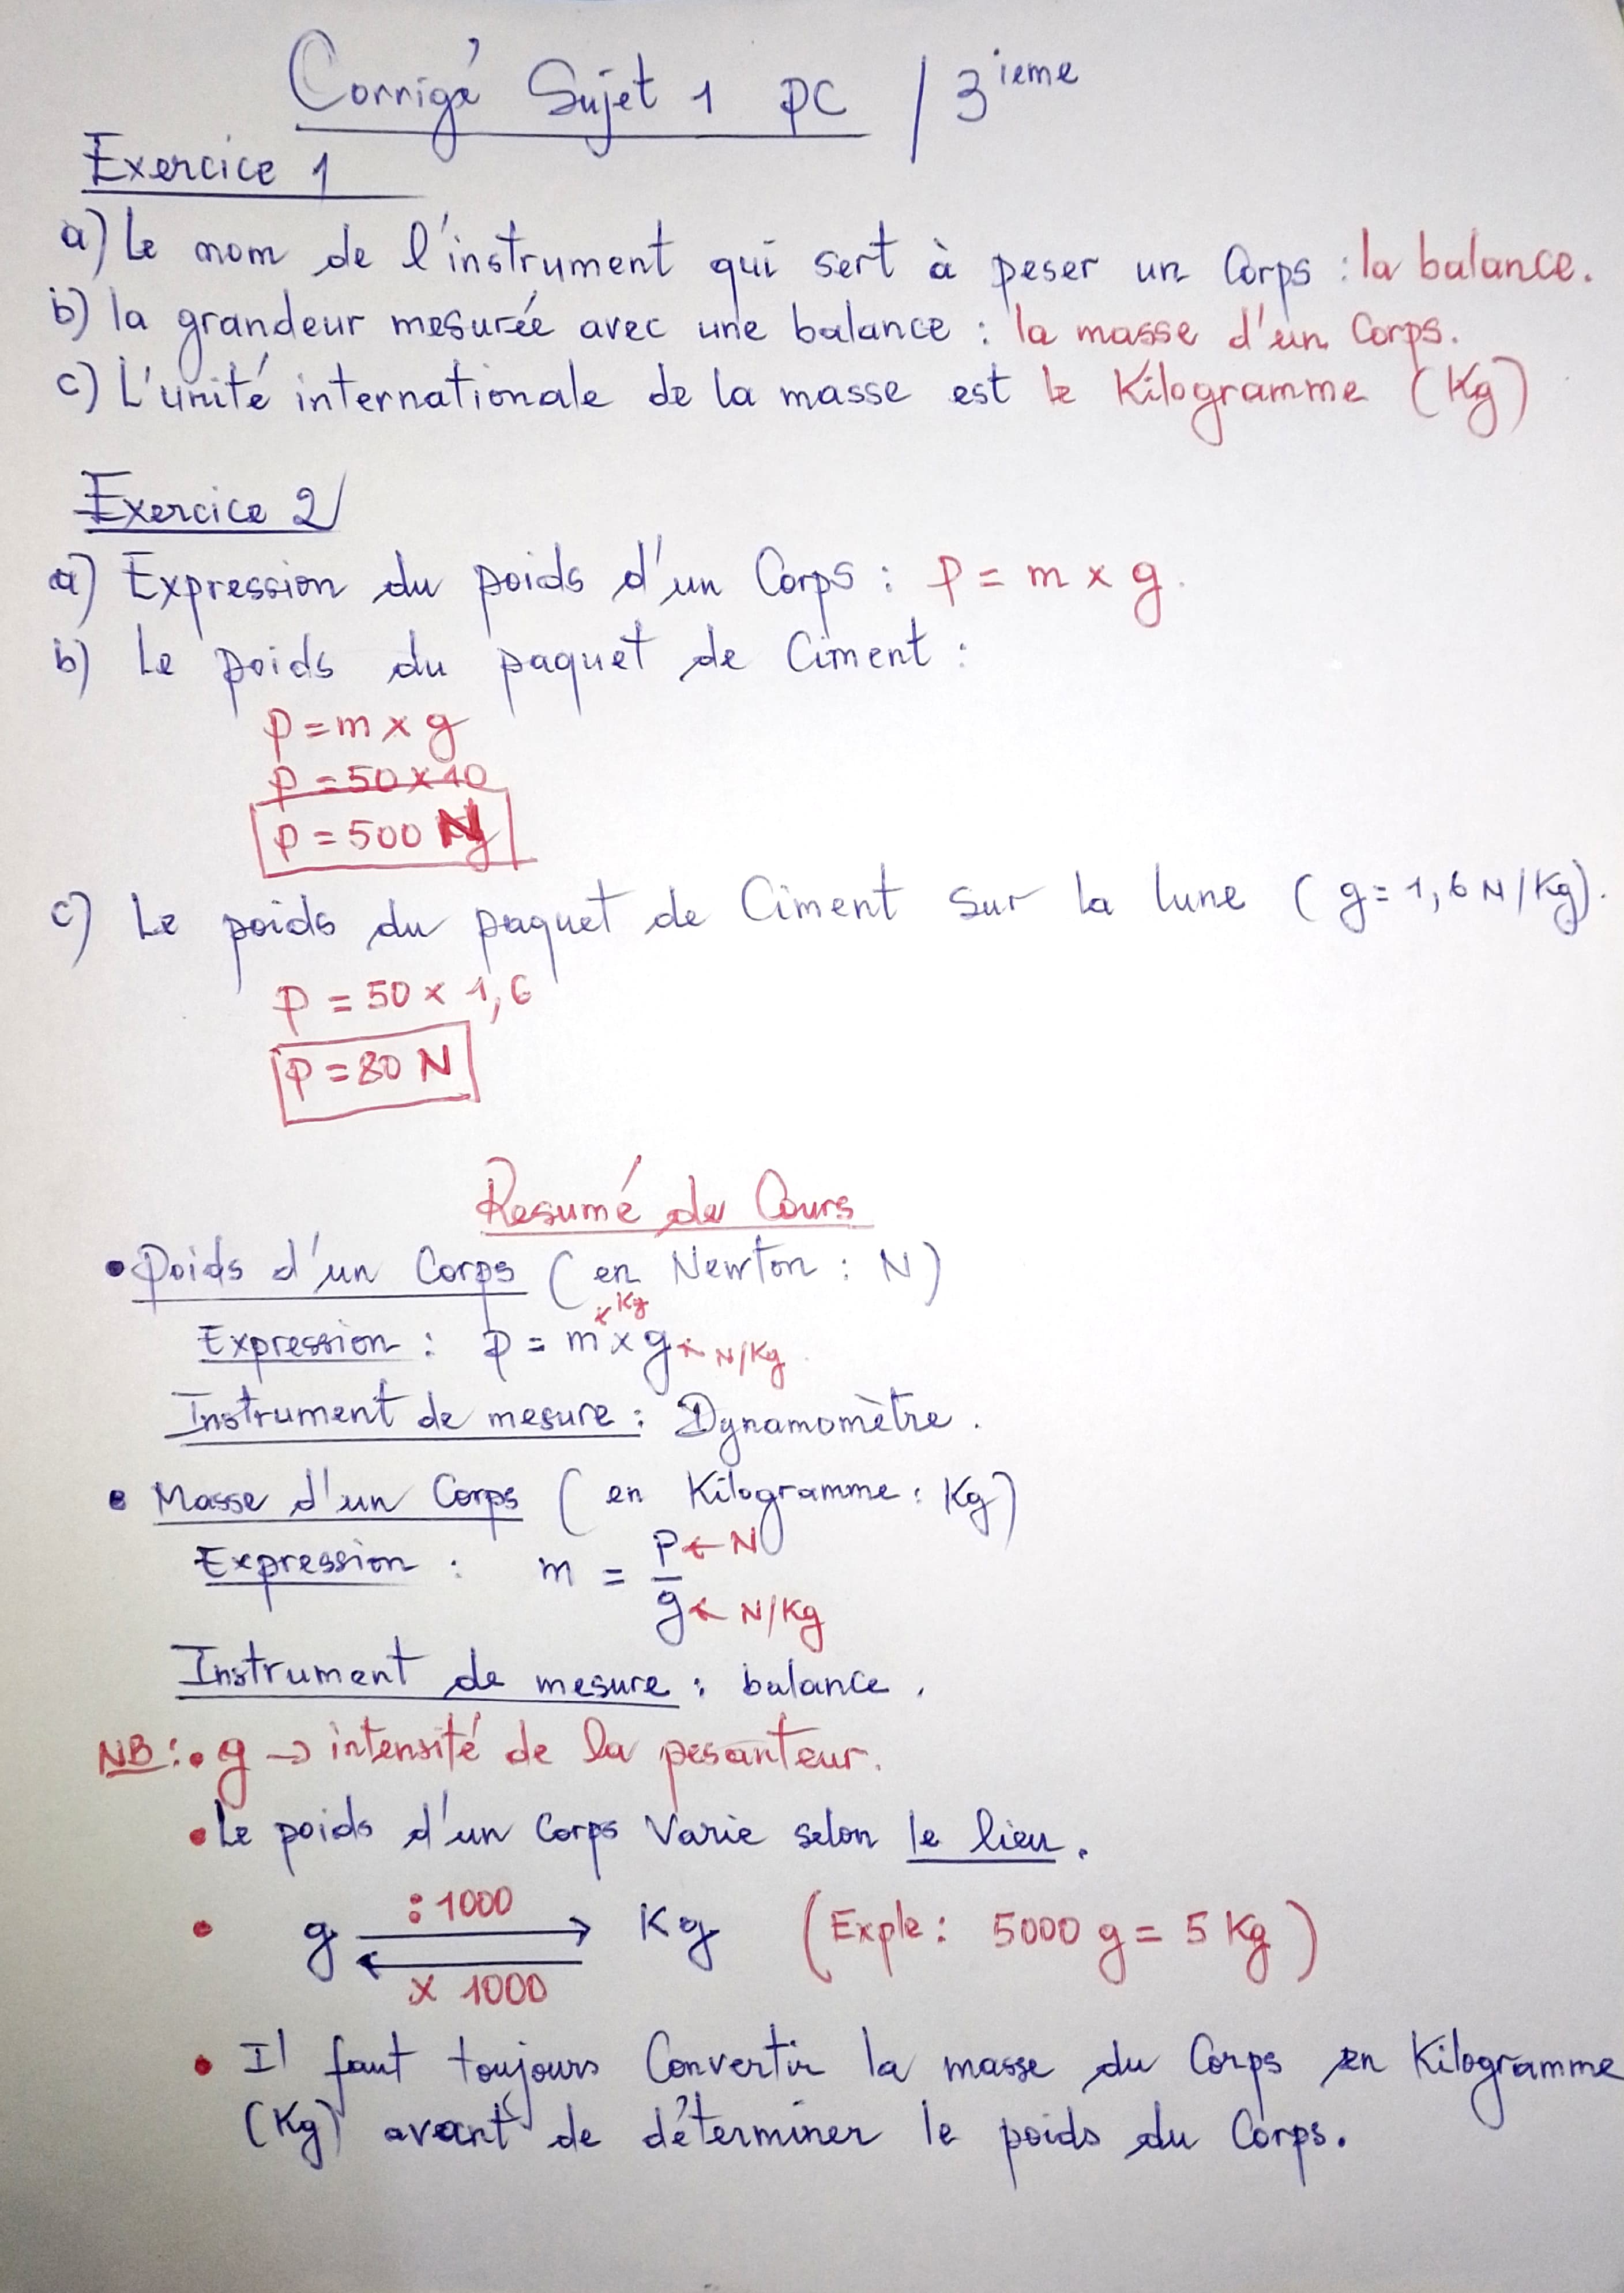 Corrigé Sujet 1 PC / 3ieme
Exercice 1
a) Le nom de l'instrument qui sert à peser un Corps : la balance.
b) la grandeur mesurée avec une balance : la masse d'un Corps.
c) L'unité internationale de la masse est le Kilogramme (Kg)
Exercice 2
a) Expression du poids d'un Corps : P = m x g.
b) Le poids du paquet de Ciment :
P = m x g
P = 50 x 10
P = 500 N
c) Le poids du paquet de Ciment sur la lune (g = 1,6 N/Kg).
P = 50 x 1,6
P = 80 N
Resumé du Cours
• Poids d'un Corps (en Newton : N)
Kg
Expression : P = m x g ← N/Kg.
Instrument de mesure : Dynamomètre.
• Masse d'un Corps (en Kilogramme : Kg)
Expression : m = P ← N
g ← N/Kg
Instrument de mesure : balance.
NB : • g → intensité de la pesanteur.
• Le poids d'un Corps Varie selon le lieu.
: 1000
• g Kg (Exple : 5000 g = 5 Kg)
x 1000
• Il faut toujours Convertir la masse du Corps en Kilogramme
(Kg) avant de déterminer le poids du Corps.